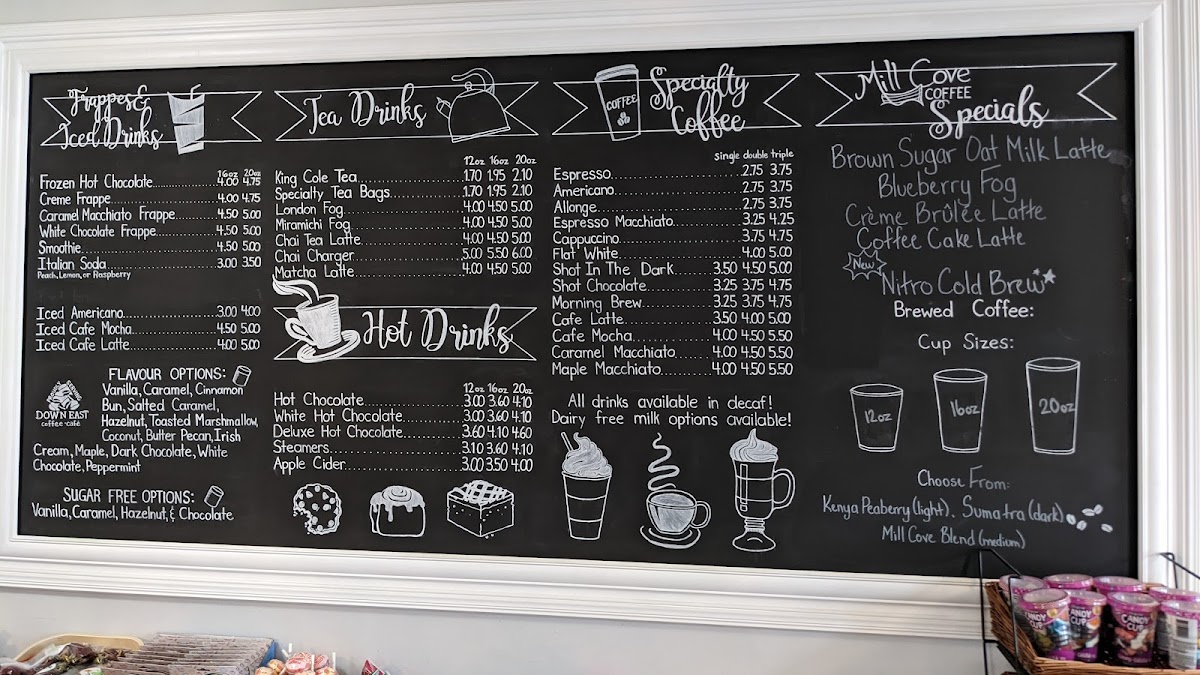 Frappes &
Iced Drinks
16oz 20oz
Frozen Hot Chocolate 4.00 4.75
Creme Frappe 4.00 4.75
Caramel Macchiato Frappe 4.50 5.00
White Chocolate Frappe 4.50 5.00
Smoothie 4.50 5.00
Italian Soda 3.00 3.50
Peach, Lemon, or Raspberry
Iced Americano 3.00 4.00
Iced Cafe Mocha 4.50 5.00
Iced Cafe Latte 4.00 5.00
FLAVOUR OPTIONS:
Vanilla, Caramel, Cinnamon
Bun, Salted Caramel,
Hazelnut, Toasted Marshmallow,
Coconut, Butter Pecan, Irish
Cream, Maple, Dark Chocolate, White
Chocolate, Peppermint
DOWN EAST
coffee • café
SUGAR FREE OPTIONS:
Vanilla, Caramel, Hazelnut, & Chocolate
Tea Drinks
12oz 16oz 20oz
King Cole Tea 1.70 1.95 2.10
Specialty Tea Bags 1.70 1.95 2.10
London Fog 4.00 4.50 5.00
Miramichi Fog 4.00 4.50 5.00
Chai Tea Latte 4.00 4.50 5.00
Chai Charger 5.00 5.50 6.00
Matcha Latte 4.00 4.50 5.00
Hot Drinks
12oz 16oz 20oz
Hot Chocolate 3.00 3.60 4.10
White Hot Chocolate 3.00 3.60 4.10
Deluxe Hot Chocolate 3.60 4.10 4.60
Steamers 3.10 3.60 4.10
Apple Cider 3.00 3.50 4.00
COFFEE
Specialty
Coffee
single double triple
Espresso 2.75 3.75
Americano 2.75 3.75
Allonge 2.75 3.75
Espresso Macchiato 3.25 4.25
Cappuccino 3.75 4.75
Flat White 4.00 5.00
Shot In The Dark 3.50 4.50 5.00
Shot Chocolate 3.25 3.75 4.75
Morning Brew 3.25 3.75 4.75
Cafe Latte 3.50 4.00 5.00
Cafe Mocha 4.00 4.50 5.50
Caramel Macchiato 4.00 4.50 5.50
Maple Macchiato 4.00 4.50 5.50
All drinks available in decaf!
Dairy free milk options available!
Mill Cove
COFFEE
Specials
Brown Sugar Oat Milk Latte
Blueberry Fog
Crème Brûlée Latte
Coffee Cake Latte
New
Nitro Cold Brew
Brewed Coffee:
Cup Sizes:
12oz 16oz 20oz
Choose From:
Kenya Peaberry (light), Sumatra (dark)
Mill Cove Blend (medium)
CANDY CUP
CANDY CUP
CANDY CUP